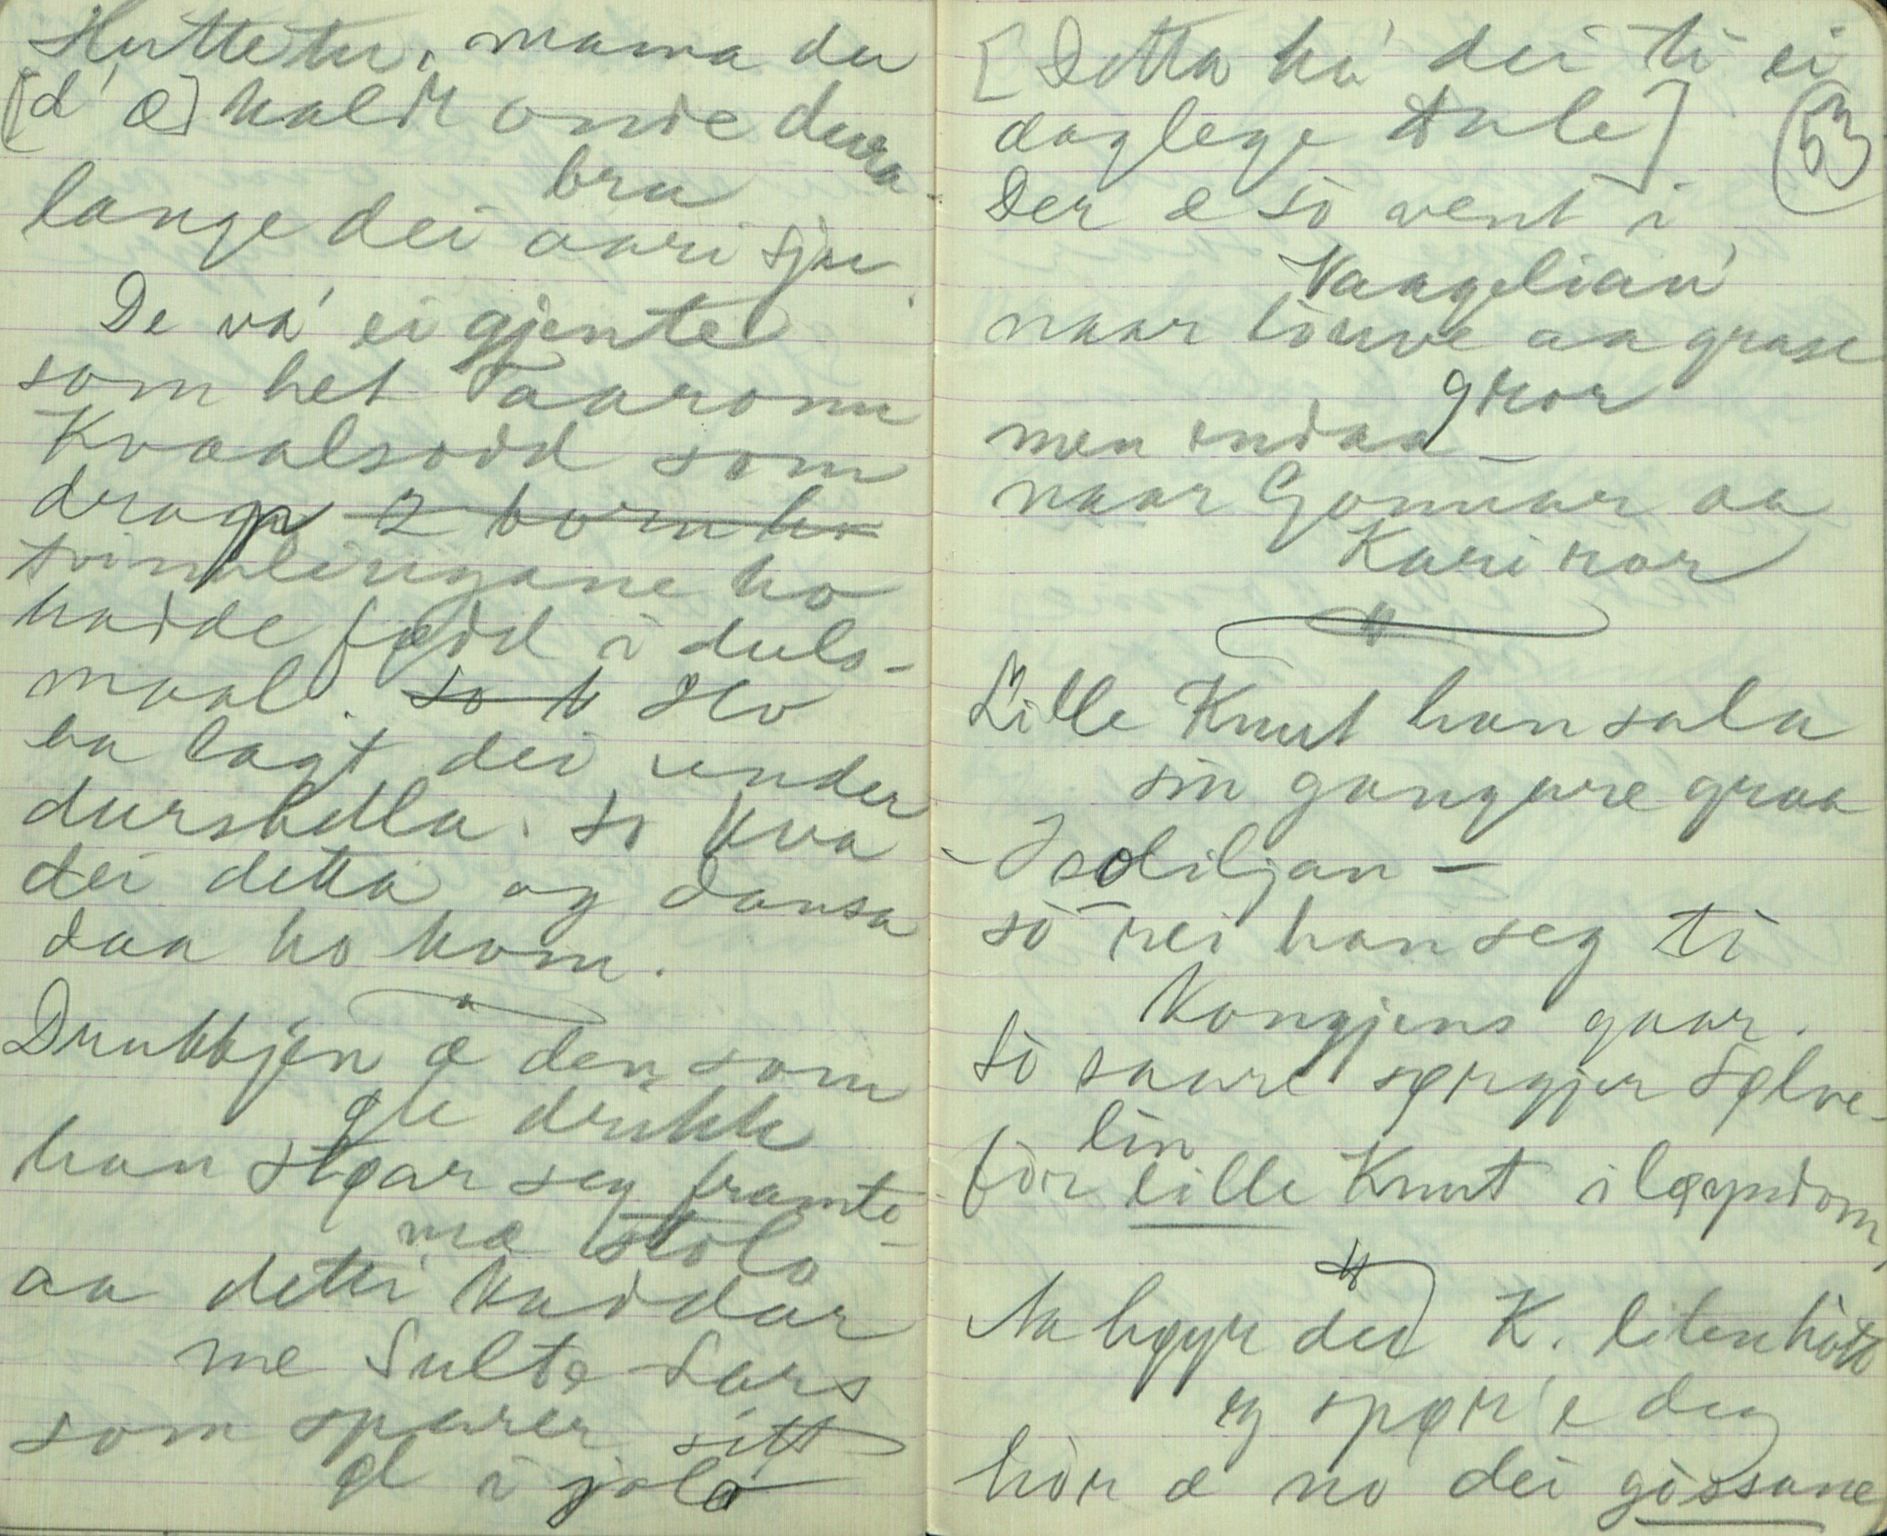 Huttetu, mama du
[d' æ] kaldt onde dura-
bru
lange dei aari sju.
De va' ei gjente
som het Taaronn
Kvaalsodd som
drap 2 born ho
tvinnlingane ho
hadde fødd i duls-
maal. so h Ho
ha lagt dei under
durshella. So kva
dei detta og dansa
daa ho kom.
Drukkjen æ den som
øle drikk
han støar seg framte
mæ stolo
aa detti kaddar
me Sulte-Lars
som sparer sitt
øl i jolo
[Detta ha' dei ti ei
daglege tale]
(53
Der æ so vent i
Vaagelian'
naar louve aa grase
gror
men endaa -
naar Gonnar aa
Kari ror
Lille Knut han sala
sin gangare graa
- Isoliljan -
so rei han seg ti
Kongjens gaar.
So saare sørgjer Sølve-
lin
for lille Knut i løyndom
Aa høyr du K. liten
eg spør'e deg
hor æ no dei gossane